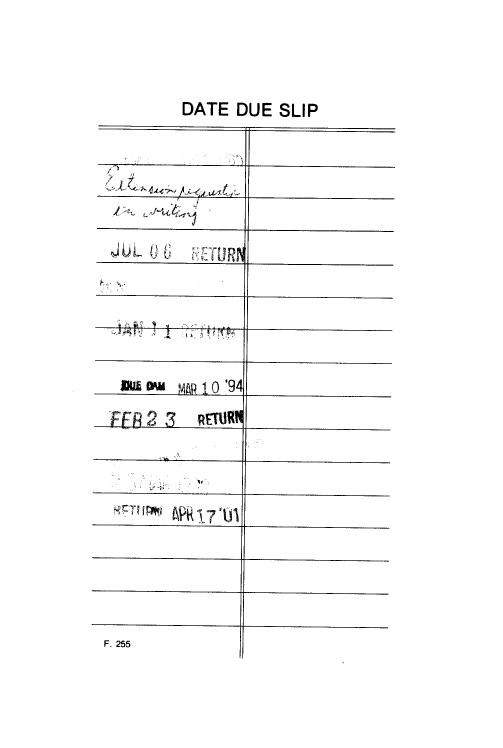 DATE DUE SLIP
Extension request
in writing
JUL 06 RETURN
JAN 11 RETURN
DUE MAR 10 '94
FEB 23 RETURN
RETURN APR 17 '01
F. 255